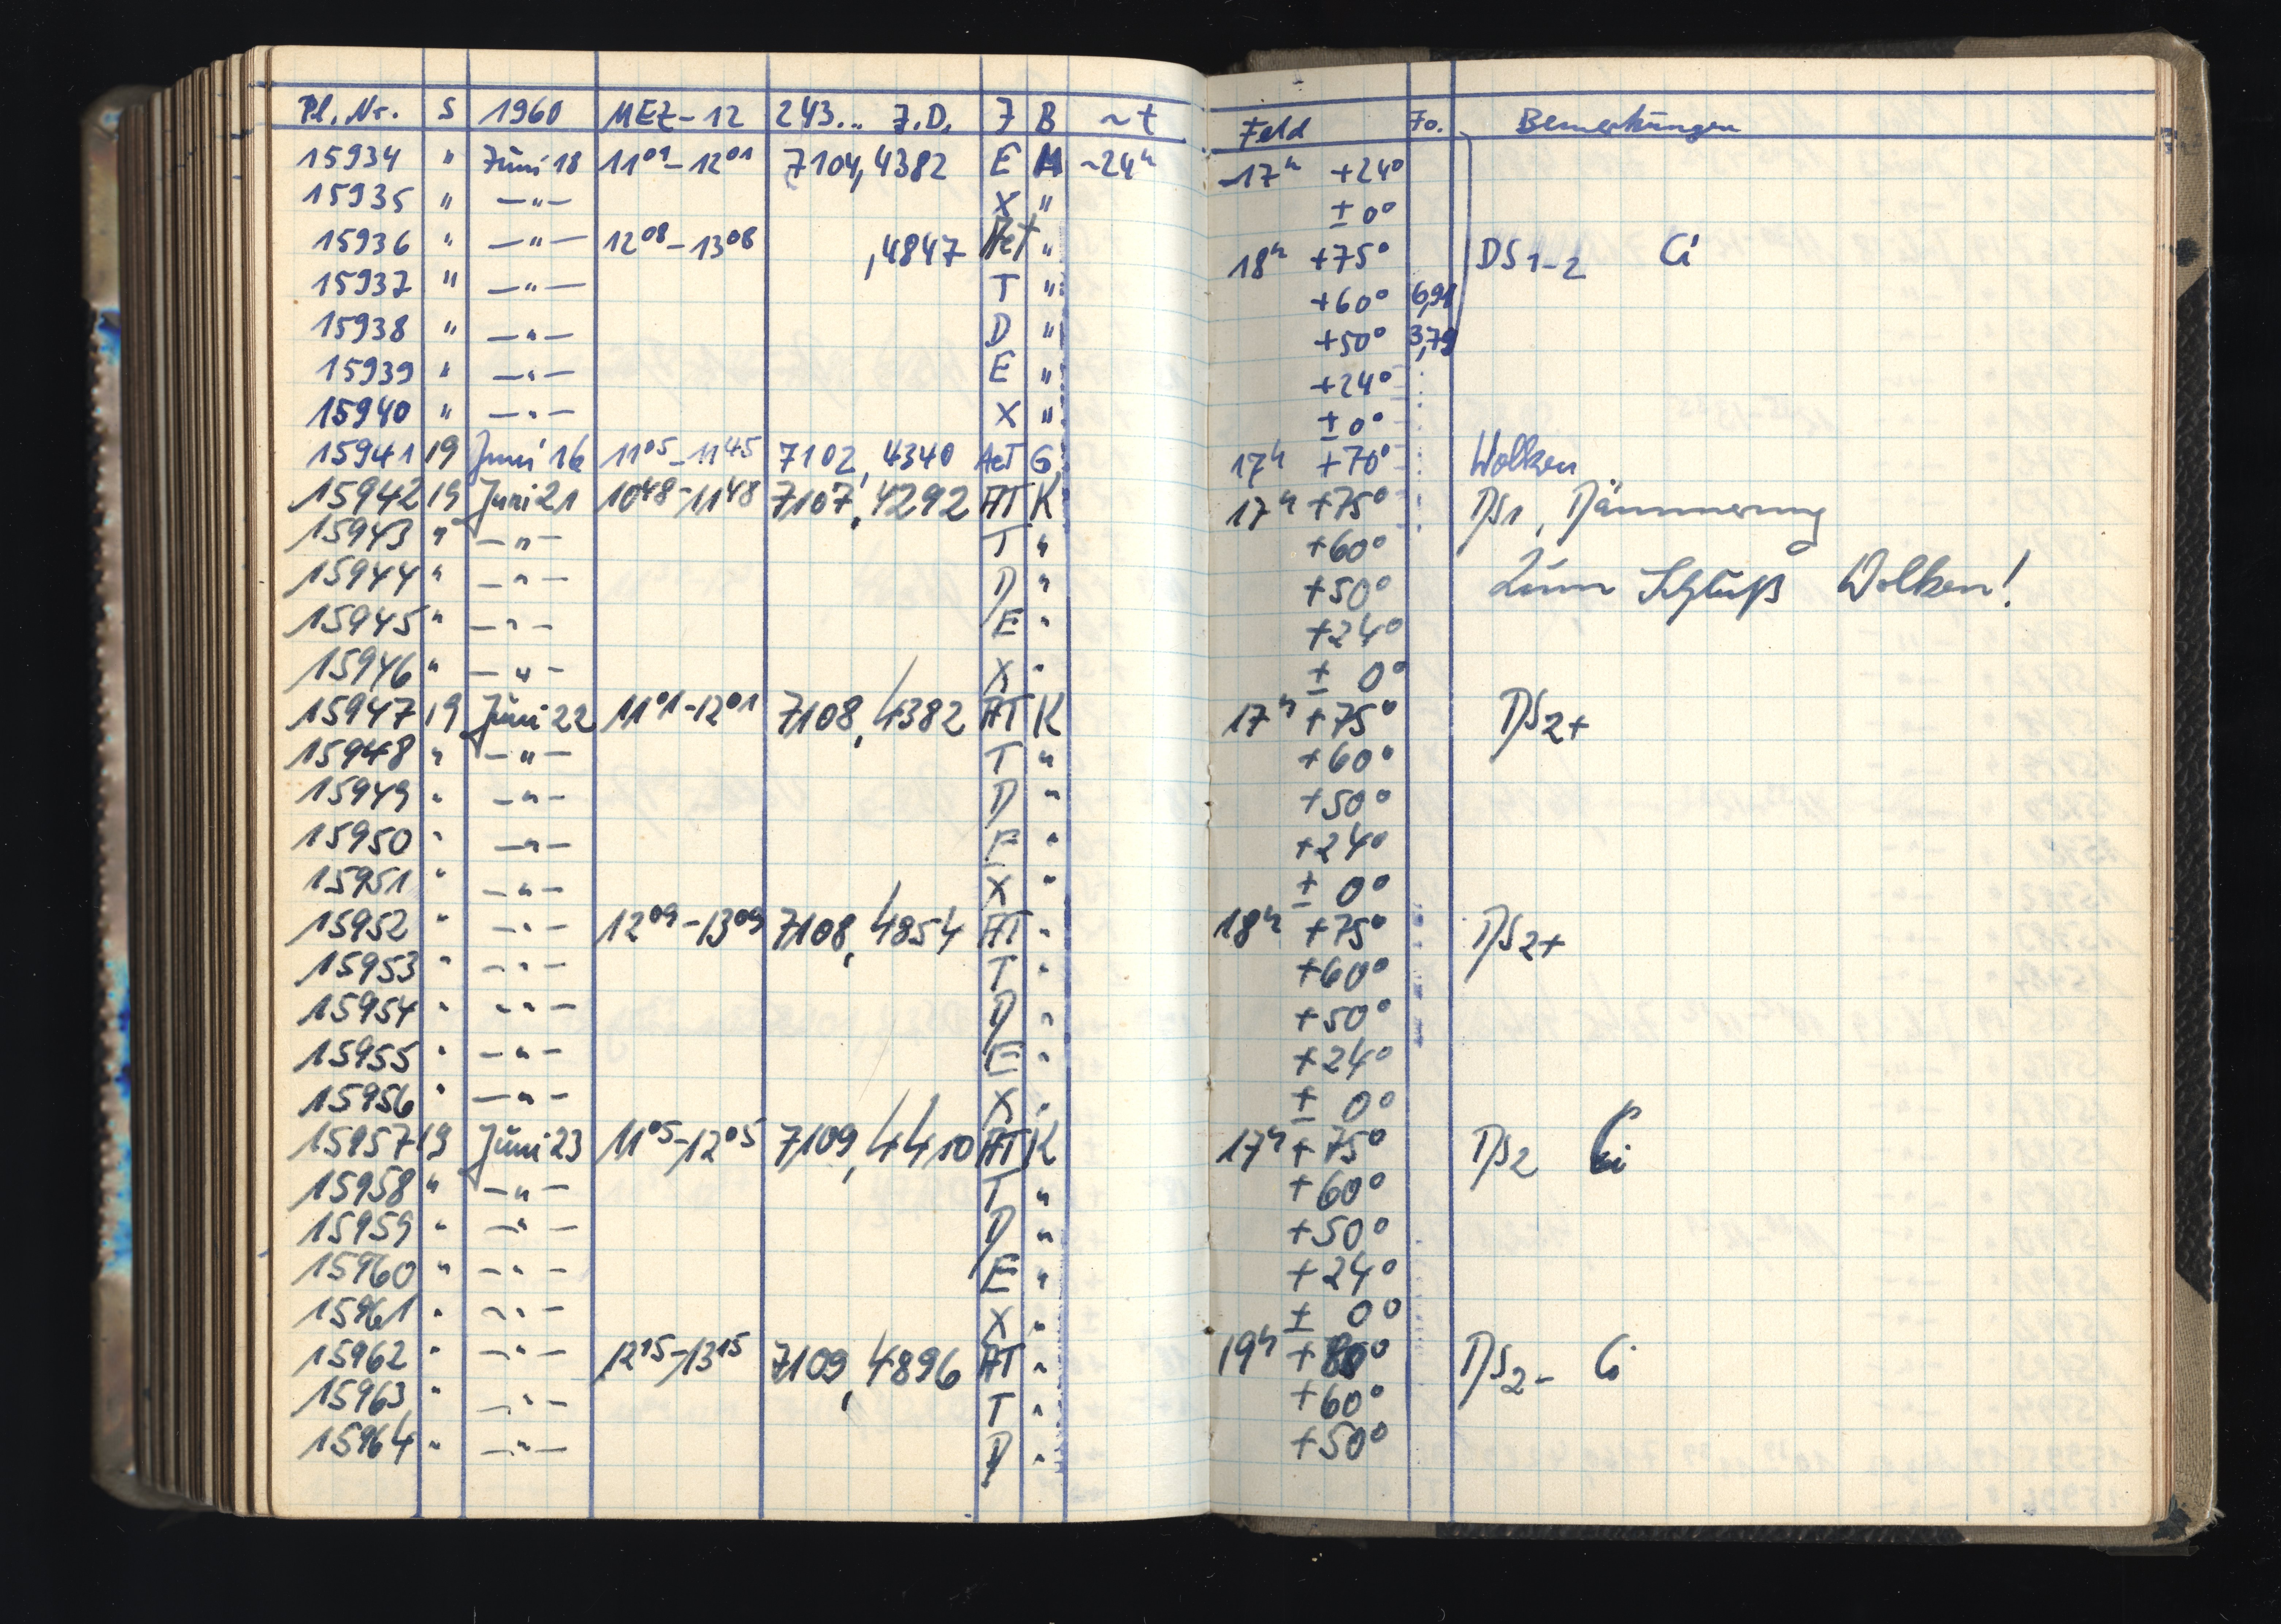 Pl. Nr. S 1960 MEZ-12 243... J.D. F B ~t Feld Fo. Bemerkungen
15934 " Juni 18 11⁰¹-12⁰¹ 7104,4382 E M ~24ʰ 17ʰ +24°
15935 " —"— X " ± 0°
15936 " —"— 12⁰⁸-13⁰⁸ ,4847 AeT " 18ʰ +75° DS 1-2 Ci
15937 " —"— T " +60° 6,91
15938 " —"— D " +50° 3,79
15939 " —"— E " +24°
15940 " —"— X " ± 0°
15941 19 Juni 16 11⁰⁵-11⁴⁵ 7102,4340 AeT G 17ʰ +70° Wolken
15942 19 Juni 21 10⁴⁸-11⁴⁸ 7107,4292 AT K 17ʰ +75° DS1, Dämmerung
15943 " —"— T " +60°
15944 " —"— D " +50° Zum Schluß Wolken!
15945 " —"— E " +24°
15946 " —"— X " ± 0°
15947 19 Juni 22 11⁰¹-12⁰¹ 7108,4382 AT K 17ʰ +75° DS2+
15948 " —"— T " +60°
15949 " —"— D " +50°
15950 " —"— E " +24°
15951 " —"— X " ± 0°
15952 " —"— 12⁰⁹-13⁰⁹ 7108,4854 AT " 18ʰ +75° DS2+
15953 " —"— T " +60°
15954 " —"— D " +50°
15955 " —"— E " +24°
15956 " —"— X " ± 0°
15957 19 Juni 23 11⁰⁵-12⁰⁵ 7109,4410 AT K 17ʰ +75° DS2 Ci
15958 " —"— T " +60°
15959 " —"— D " +50°
15960 " —"— E " +24°
15961 " —"— X " ± 0°
15962 " —"— 12¹⁵-13¹⁵ 7109,4896 AT " 19ʰ +80° DS2- Ci
15963 " —"— T " +60°
15964 " —"— D " +50°